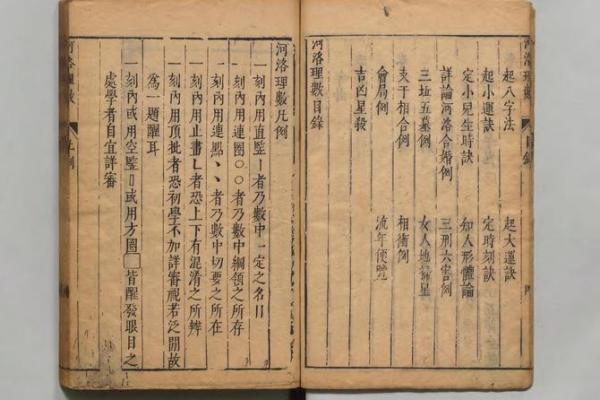 河洛理數 目錄
起八字法 起大運訣
起小運訣 定時刻訣
定小兒生時訣 知人形體論
詳論河洛合婚例 三刑六害例
三坵五墓例 女人地掃星
支干相合例 相衝例
會局例 流年便覽
吉凶星殺
河洛理數目錄
河洛理數凡例
一刻內用直豎｜者乃數中一定之名目
一刻內用連圈○○者乃數中綱領之所存
一刻內用連點、、者乃數中切要之所在
一刻內用止畫乚者恐上下有混淆之所辨
一刻內用頂批者恐初學不加詳審視若泛閒故
為一題醒耳
一刻內或用空豎▯或用方圈□皆醒發眼目之
處學者自宜詳審
河洛理數 凡例